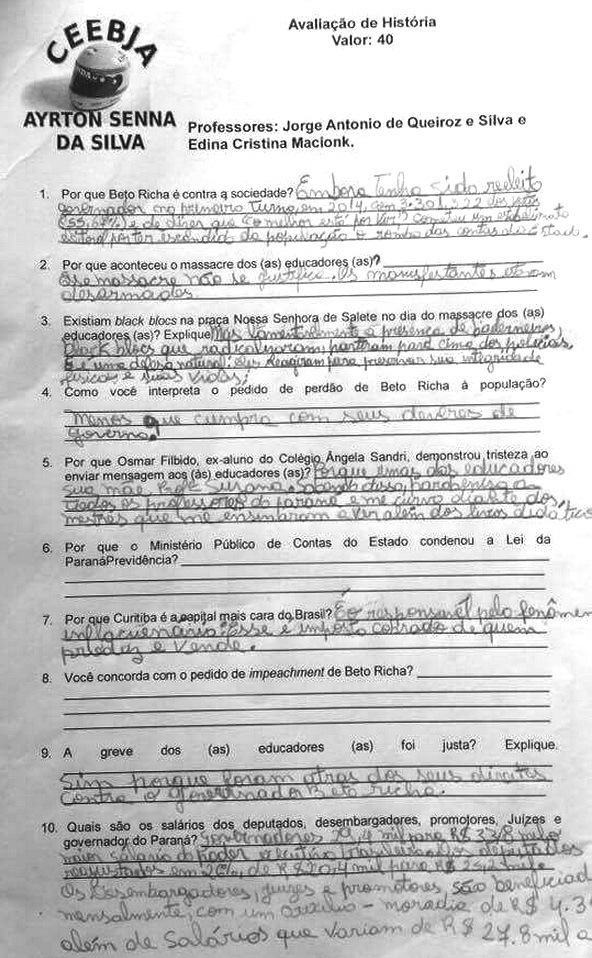 CEEBJA
AYRTON SENNA
DA SILVA
Avaliação de História
Valor: 40
Professores: Jorge Antonio de Queiroz e Silva e
Edina Cristina Macionk.
1. Por que Beto Richa é contra a sociedade? Embora tenha sido reeleito
governador no primeiro turno, em 2014, com 3.301.322 dos votos
e de dizer que "o melhor está por vir" cometeu um
por ter escondido da população o rombo das contas do Estado.
2. Por que aconteceu o massacre dos (as) educadores (as)?
Esse massacre não se justifica. Os manifestantes estavam
desarmados
3. Existiam black blocs na praça Nossa Senhora de Salete no dia do massacre dos (as)
educadores (as)? Explique. Mas lamentavelmente a presença de baderneiros,
Black blocs que radicalizaram, partiram para cima dos policiais,
E é uma defesa natural: eles reagiram para preservar sua integridade
física e suas vidas;
4. Como você interpreta o pedido de perdão de Beto Richa à população?
menos que cumpra com seus deveres de
governo!
5. Por que Osmar Filbido, ex-aluno do Colégio Ângela Sandri, demonstrou tristeza ao
enviar mensagem aos (às) educadores (as)? Porque uma das educadores
sua mãe Profe Susana. Sabendo disso,
todos os professores do paraná e me curvo diante dos
mestres que me ensinaram a ver além dos livros didáticos
6. Por que o Ministério Público de Contas do Estado condenou a Lei da
ParanáPrevidência?
7. Por que Curitiba é a capital mais cara do Brasil? É o responsável pelo fenômen
inflacionário. Esse é imposto cobrado de quem
produz e vende.
8. Você concorda com o pedido de impeachment de Beto Richa?
9. A greve dos (as) educadores (as) foi justa? Explique.
Sim porque foram atras dos seus direitos
contra o governador Beto richa.
10. Quais são os salários dos deputados, desembargadores, promotores, Juízes e
governador do Paraná? 29,4 mil para R$ 33,8 mil o
maior salário do poder executivo brasileiro. Os deputados
reajustados em 26%, de R$ 20,4 mil para R$ 25,2 mil.
Os Desembargadores, juizes e promotores, são beneficiad
mensalmente, com um auxilio - moradia de R$ 4.3
além de salários que variam de R$ 27.8 mil a